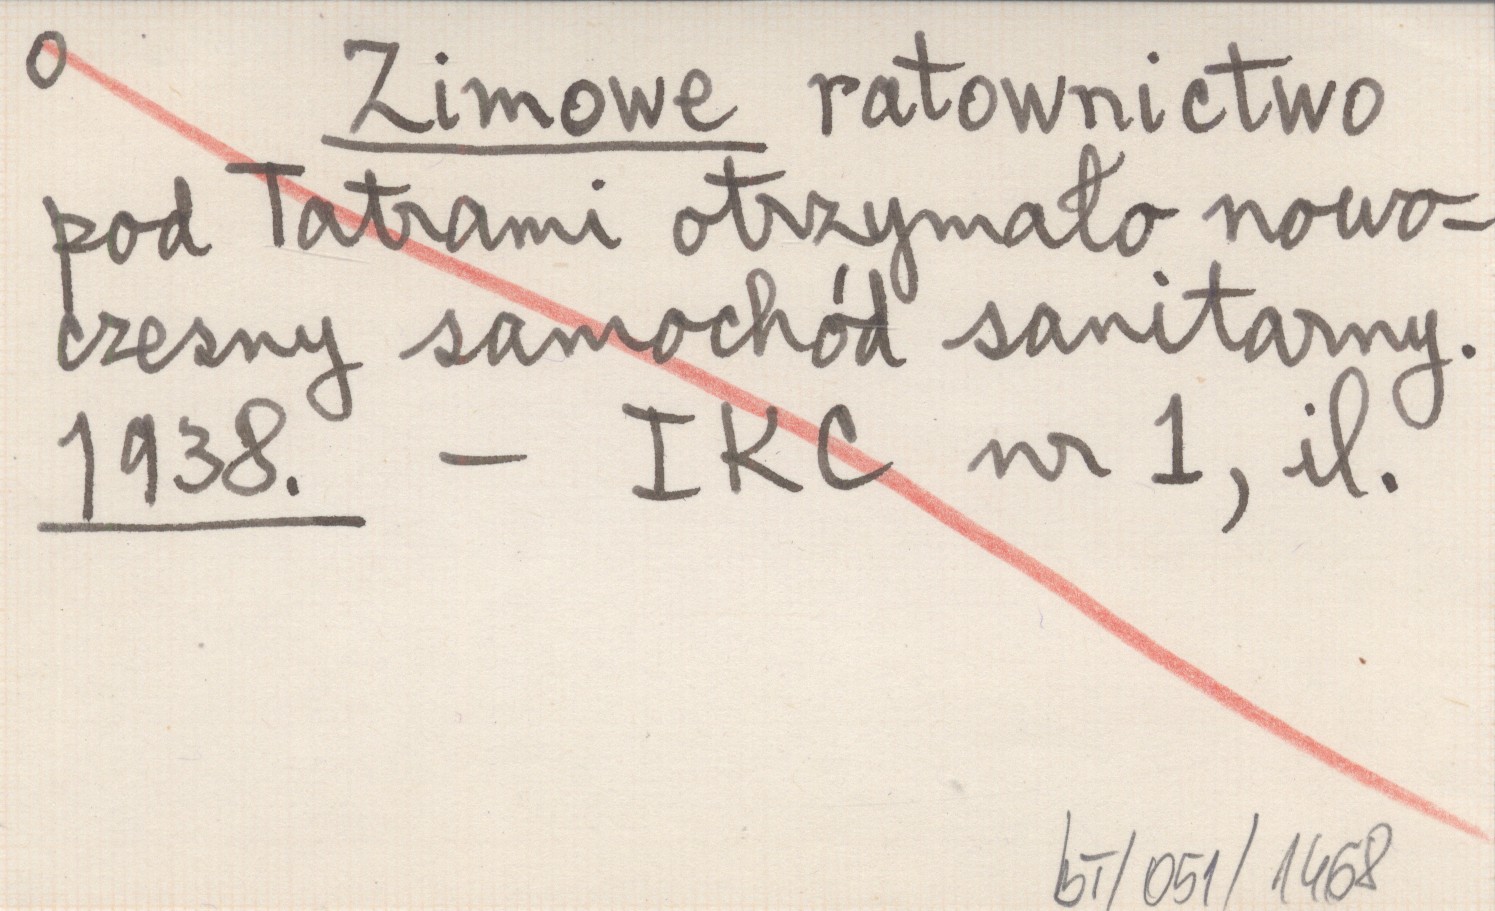 o Zimowe ratownictwo
pod Tatrami otrzymało nowo-
czesny samochód sanitarny.
1938. – IKC nr 1, il.
bT/051/1468